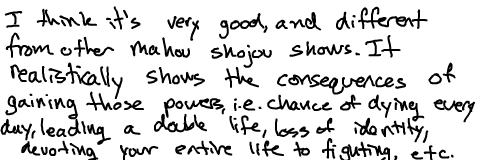 I think it's very good, and different
from other mahou shojou shows. It
realistically shows the consequences of
gaining those powers, i.e. chance of dying every
day, leading a double life, loss of identity,
devoting your entire life to fighting, etc.